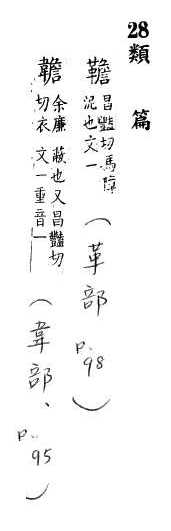 28類篇
韂 昌豔切馬障
泥也文一
(革部 p.98)
䪜 余廉 蔽也又昌豔切
切衣 文一重音一
(韋部、p.95)